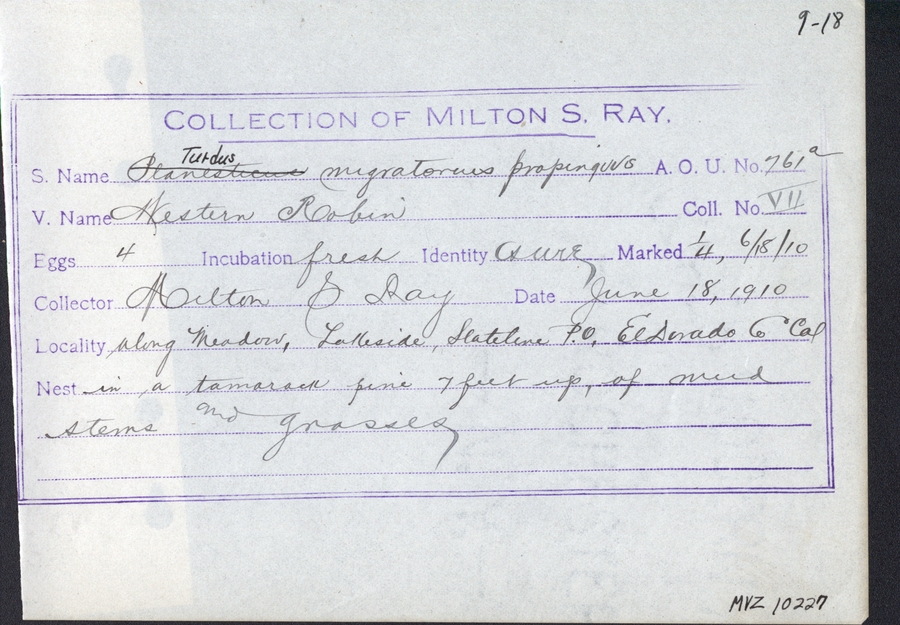 9-18
COLLECTION OF MILTON S. RAY.
Turdus
S. Name Planesticus migratorius propinquus A. O. U. No. 761a
V. Name Western Robin Coll. No. VII
Eggs 4 Incubation fresh Identity sure Marked 1/4, 6/18/10
Collector Milton S Ray Date June 18, 1910
Locality along Meadow, Lakeside, Stateline P.O. El Dorado Co Cal
Nest in a tamarack pine 7 feet up, of mud
stems and grasses
MVZ 10227